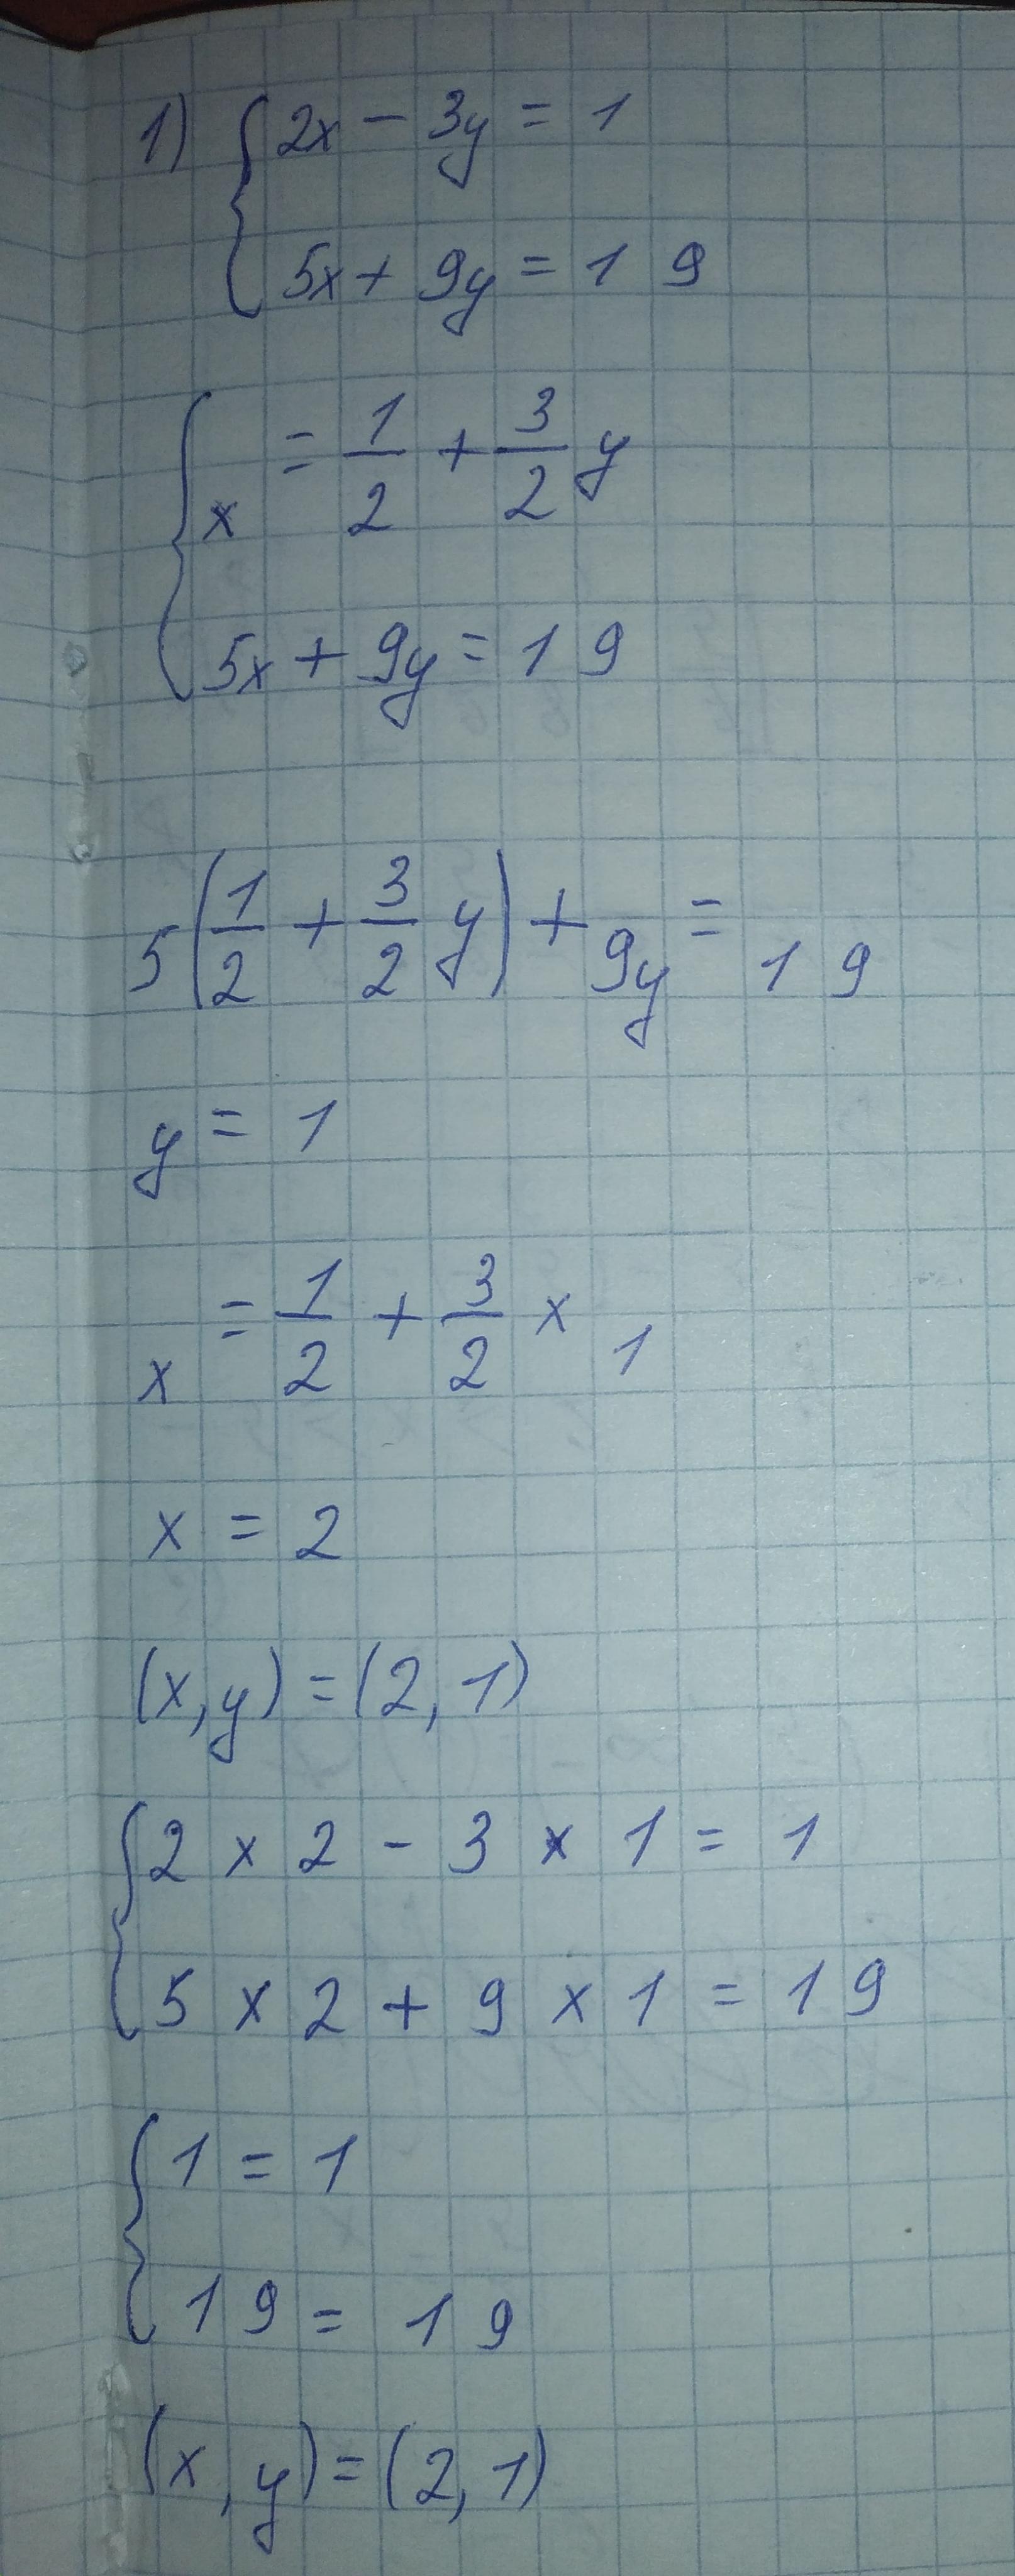 1) { 2x - 3y = 1
5x + 9y = 19
{ x = 1/2 + 3/2 y
5x + 9y = 19
5(1/2 + 3/2 y) + 9y = 19
y = 1
x = 1/2 + 3/2 × 1
x = 2
(x, y) = (2, 1)
{ 2 × 2 - 3 × 1 = 1
5 × 2 + 9 × 1 = 19
{ 1 = 1
19 = 19
(x, y) = (2, 1)